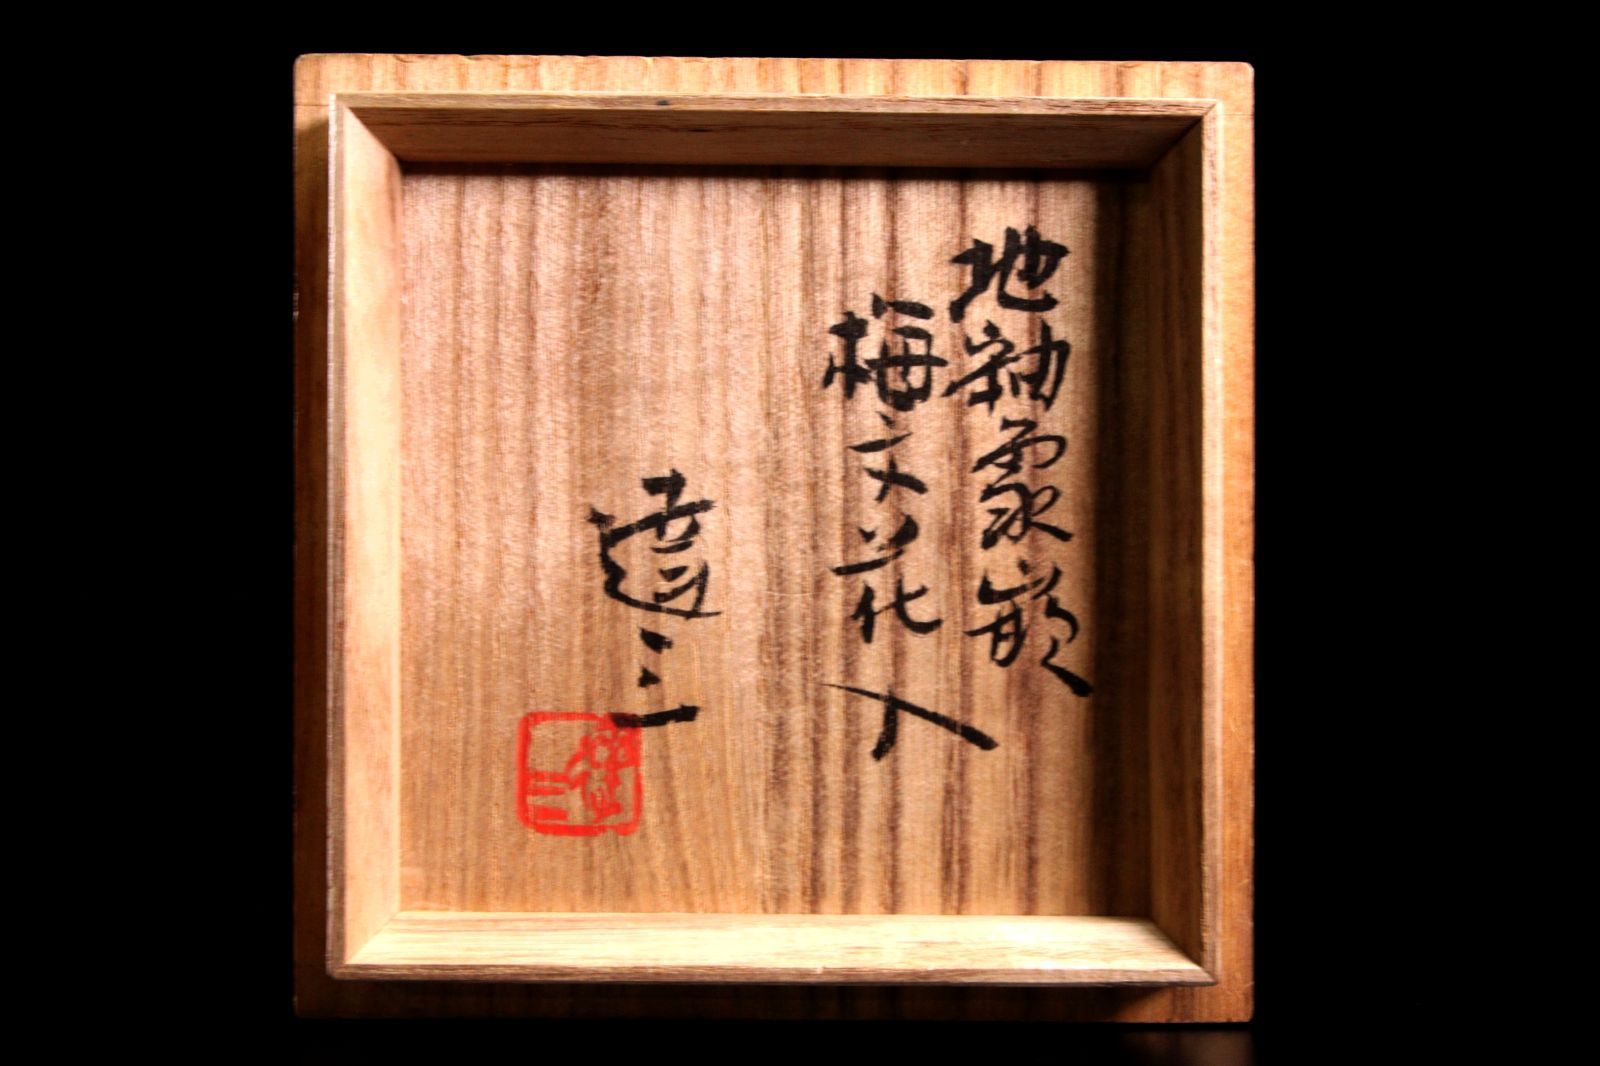 地釉象嵌
梅文花入
達三